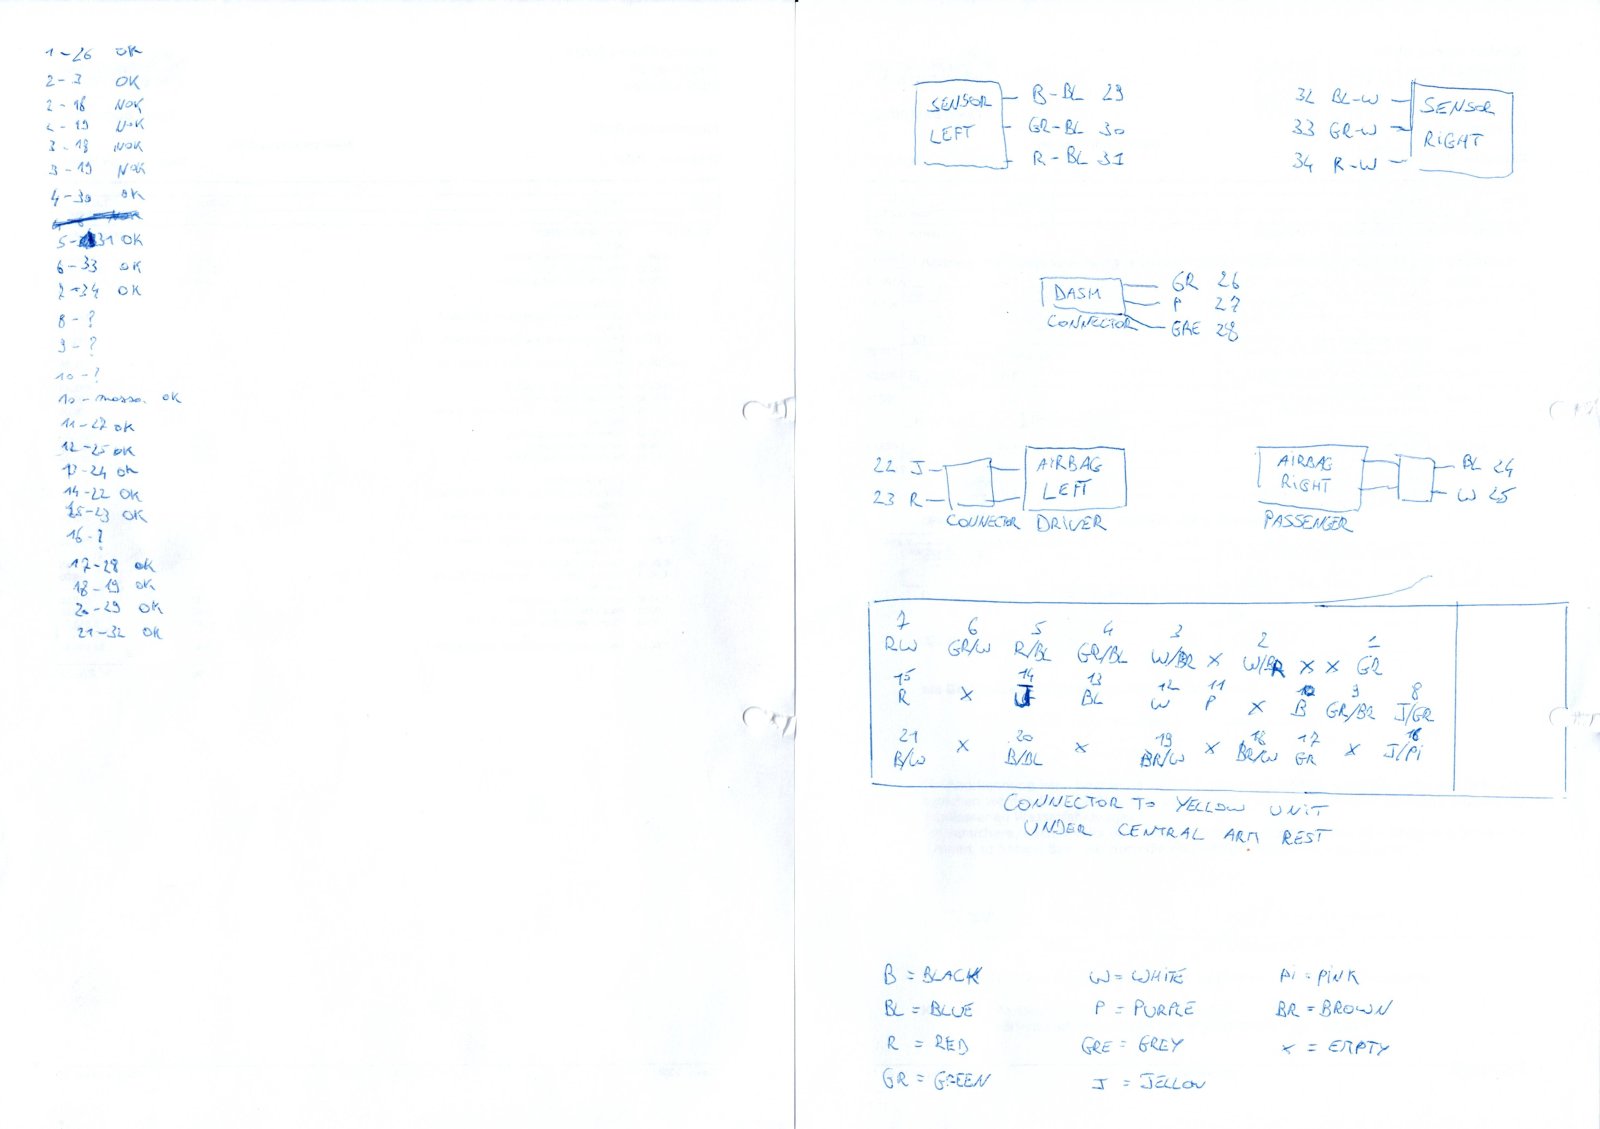 1-26 OK
2-3 OK
2-18 NOK
2-19 NOK
3-18 NOK
3-19 NOK
4-30 OK
5-31 OK
6-33 OK
7-34 OK
8-?
9-?
10-?
10-massa. OK
11-27 OK
12-25 OK
13-24 OK
14-22 OK
15-23 OK
16-?
17-28 OK
18-19 OK
20-29 OK
21-32 OK
SENSOR LEFT
B-BL 29
GR-BL 30
R-BL 31
32 BL-W
33 GR-W
34 R-W
SENSOR RIGHT
DASH
CONNECTOR
GR 26
P 27
GRE 28
22 J
23 R
CONNECTOR
AIRBAG LEFT
DRIVER
AIRBAG RIGHT
PASSENGER
BL 24
W 25
7 6 5 4 3 2 1
R/W GR/W R/BL GR/BL W/BR x W/BR x x GR
15 14 13 12 11 10 9 8
R x J BL W P x B GR/BR J/GR
21 20 19 18 17 16
B/W x B/BL x BR/W x BR/W GR x J/Pi
CONNECTOR TO YELLOW UNIT
UNDER CENTRAL ARM REST
B = BLACK W = WHITE Pi = PiNK
BL = BLUE P = PURPLE BR = BROWN
R = RED GRE = GREY x = EMPTY
GR = GREEN J = JELLOW